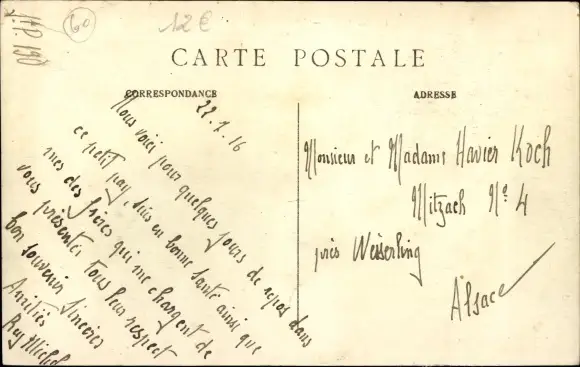 60
12 €
CARTE POSTALE
CORRESPONDANCE
22.7.16
Nous voici pour quelques jours de repos dans
ce petit pays. Suis en bonne santé ainsi que
mes des frères qui me chargent de
vous présenter tous leurs respect
bon souvenir sincères
Amitiés
Rey Michel
ADRESSE
Monsieur et Madame Havier Koch
Mitzach Nº 4
près Wesserling
Alsace